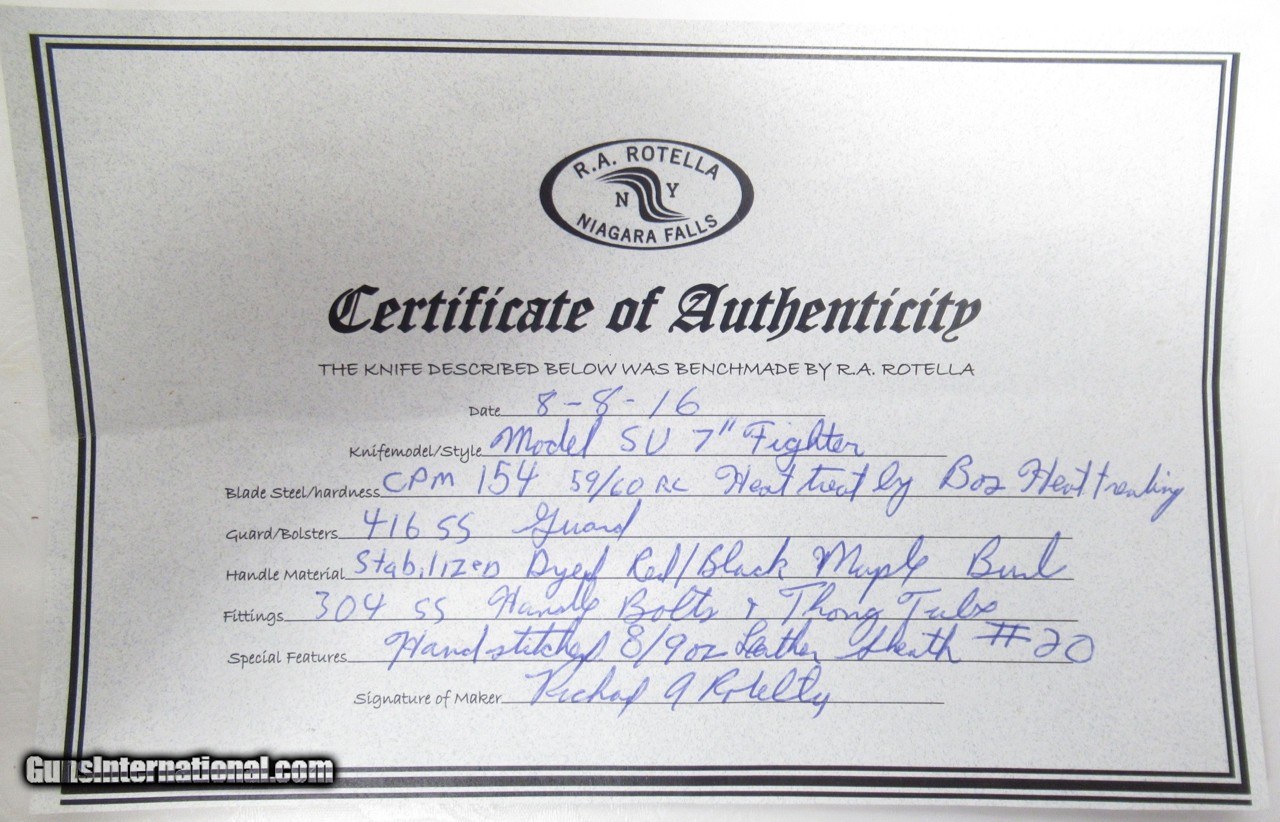 R.A. ROTELLA
N Y
NIAGARA FALLS
Certificate of Authenticity
THE KNIFE DESCRIBED BELOW WAS BENCHMADE BY R.A. ROTELLA
Date 8-8-16
Knifemodel/Style Model SU 7" Fighter
Blade Steel/hardness CPM 154 59/60 RC Heat treat by Bos Heat treating
Guard/Bolsters 416 SS Guard
Handle Material Stabilized Dyed Red/Black Maple Burl
Fittings 304 SS Handle Bolts & Thong Tube
Special Features Handstitched 8/9 oz Leather Sheath #20
Signature of Maker Richard A Rotella
GunsInternational.com